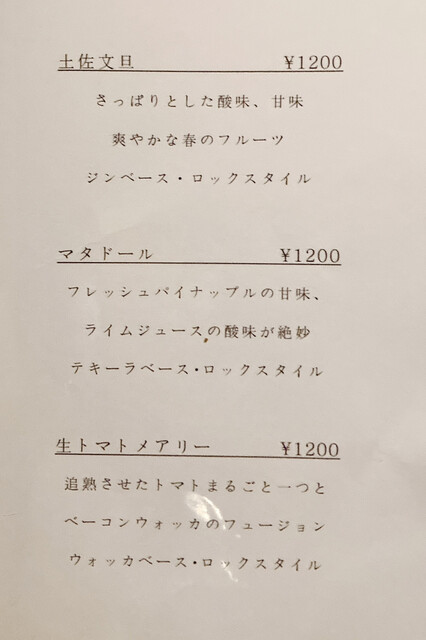 土佐文旦 ¥1200
さっぱりとした酸味、甘味
爽やかな春のフルーツ
ジンベース・ロックスタイル
マタドール ¥1200
フレッシュパイナップルの甘味、
ライムジュースの酸味が絶妙
テキーラベース・ロックスタイル
生トマトメアリー ¥1200
追熟させたトマトまるごと一つと
ベーコンウォッカのフュージョン
ウォッカベース・ロックスタイル